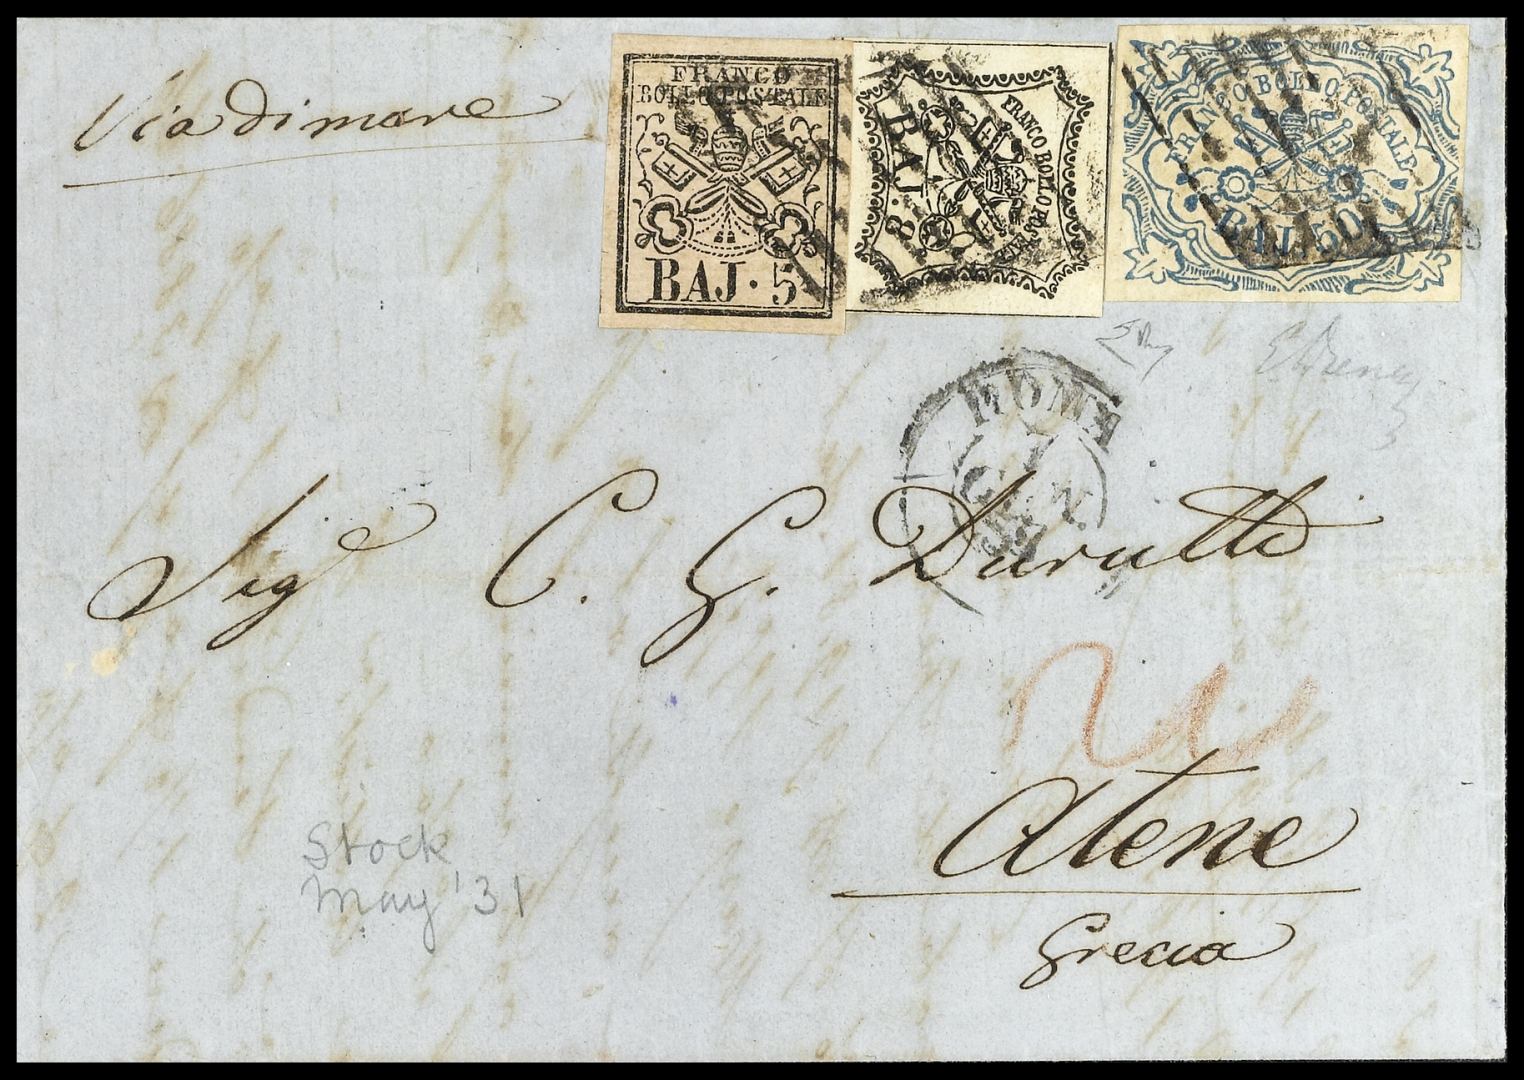 Via di mare
FRANCO
BOLLO POSTALE
BAJ. 5
FRANCO BOLLO POSTALE
BAJ. 8
FRANCO BOLLO POSTALE
BAJ. 50
ROMA
Sigr C. G. Durutti
Atene
Grecia
Stock
May '31